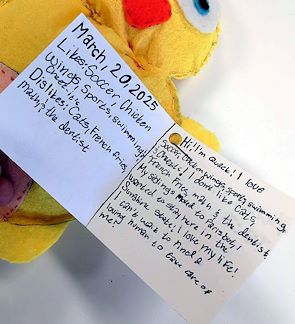 March, 20 2025
Likes: Soccer, Chicken
Wings, Sports, Swimming,
Cheez its
Dislikes: Cats, French fries,
math, & the dentist
Hi! I'm quack! I love
Soccer, chicken wings, sports, swimming,
& cheezits! I don't like cats,
french fries, math, & the dentist
My siblings moved to
wanted to stay here in the
Sunshine state! I love my life!
I can't wait to find a
loving human to take care of
me!